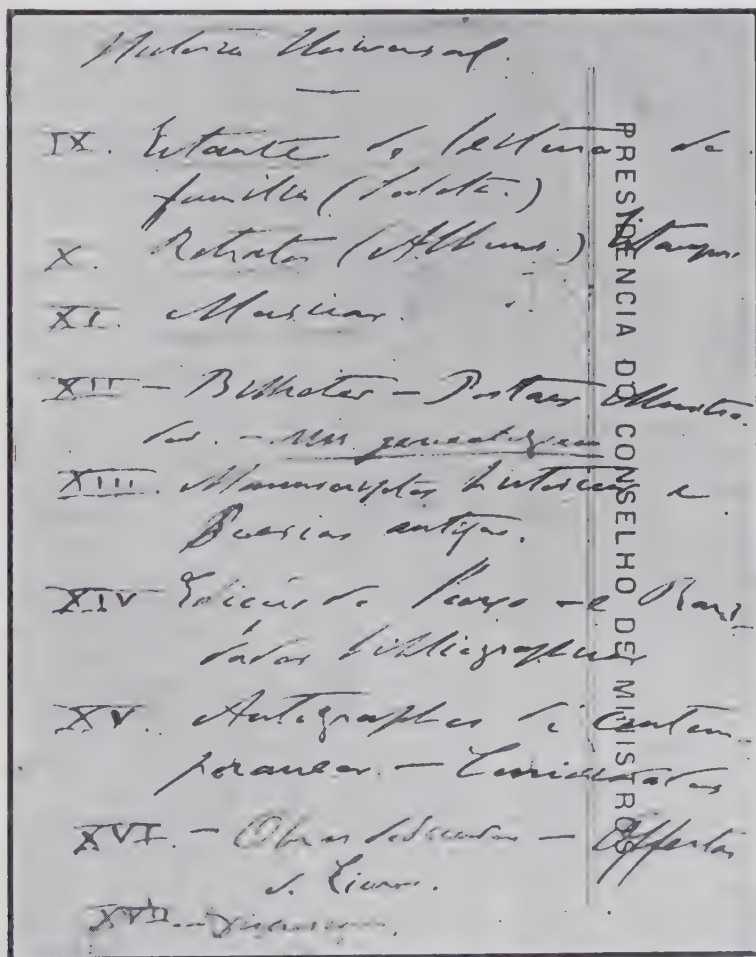 Historia Universal.
IX. Estante de lectura de
familia (
X. Retratos (Albuns.) Estampas.
XI. Musicas.
XII - Bilhetes - Postaes Illustra-
dos. - Mss. genealogicos
XIII. Manuscriptos historicos e
Poesias antigas.
XIV Edições de Luxo - e Rari-
dades bibliographicas
XV. Autographos de contem-
poraneos. -
XVI. - Obras dedicadas - Offertas
de Livros.
XVII -
PRESIDENCIA DO CONSELHO DE MINISTROS